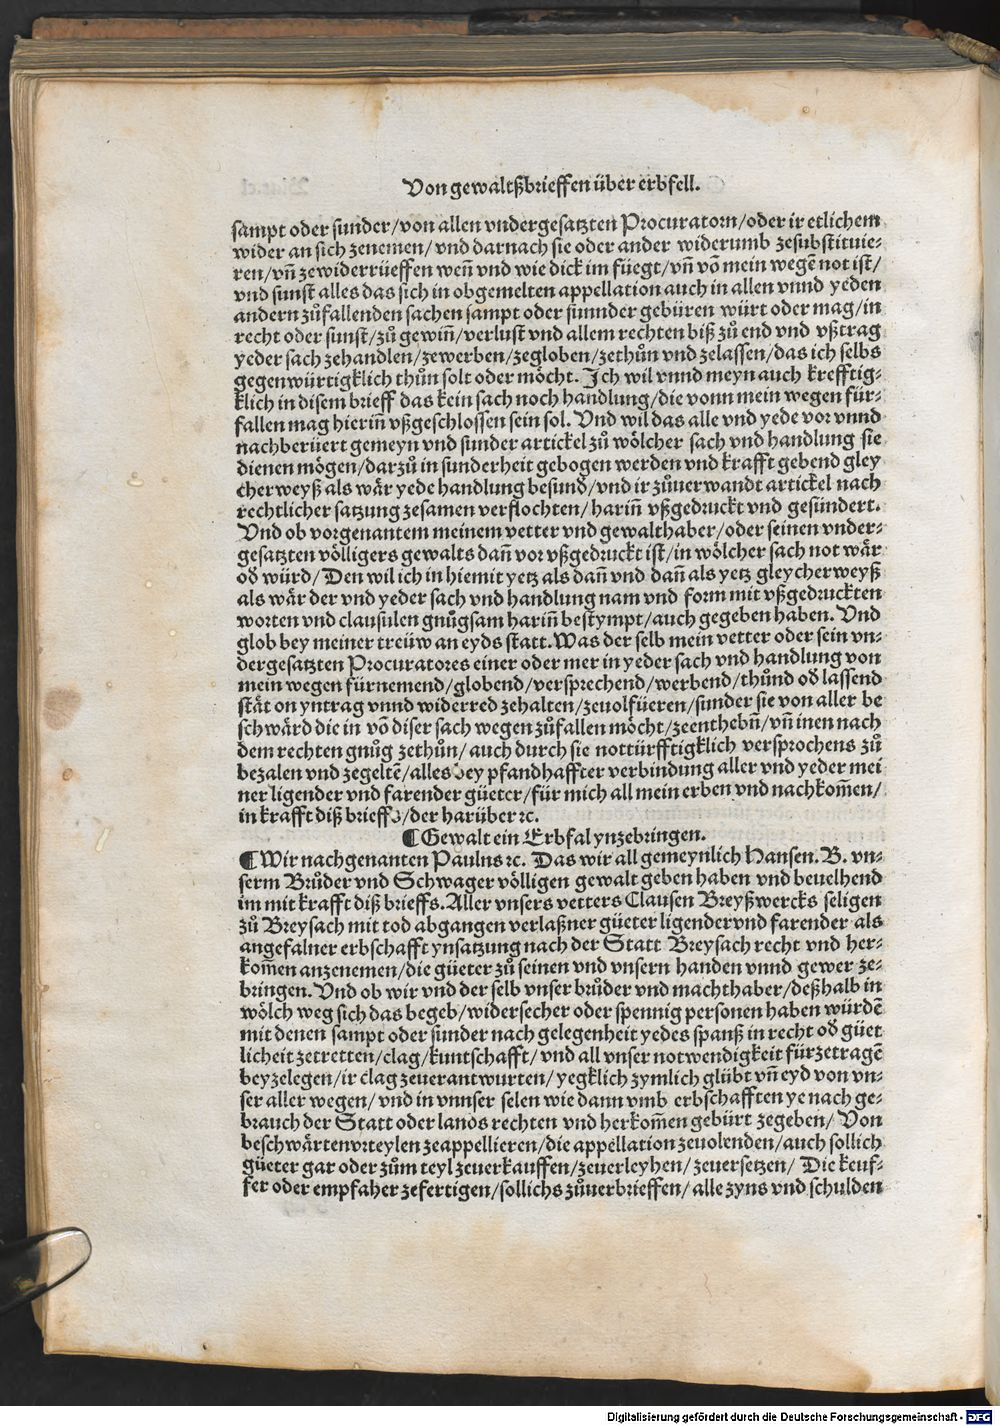 Von gewaltßbrieffen über erbfell.
sampt oder sunder/von allen vndergesatzten Procuratorn/oder ir etlichem
wider an sich zenemen/ vnd darnach sie oder ander widerumb zesubstituie-
ren/vñ zewiderrüeffen weñ vnd wie dick im füegt/vñ võ mein wegẽ not ist/
vnd sunst alles das sich in obgemelten appellation auch in allen vnnd yeden
andern zůfallenden sachen sampt oder sunnder gebüren würt oder mag/in
recht oder sunst/zů gewiñ/verlust vnd allem rechten biß zů end vnd vßtrag
yeder sach zehandlen/zewerben/zegloben/zethůn vnd zelassen/das ich selbs
gegenwürtigklich thůn solt oder möcht. Ich wil vnnd meyn auch krefftig-
klich in disem brieff das kein sach noch handlung/die vonn mein wegen für-
fallen mag hieriñ vßgeschlossen sein sol. Vnd wil das alle vnd yede vor vnnd
nachberüert gemeyn vnd sunder artickel zů wölcher sach vnd handlung sie
dienen mögen/darzů in sunderheit gebogen werden vnd krafft gebend gley
cher weyß als wär yede handlung besund/vnd ir zůuerwandt artickel nach
rechtlicher satzung zesamen verflochten/hariñ vßgedruckt vnd gesündert.
Vnd ob vorgenantem meinem vetter vnd gewalthaber/oder seinen vnder-
gesatzten völligers gewalts dañ vor vßgedruckt ist/in wölcher sach not wär
od würd/Den wil ich in hiemit yetz als dañ vnd dañ als yetz gleycherweyß
als wär der vnd yeder sach vnd handlung nam vnd form mit vßgedruckten
worten vnd clausulen gnůgsam hariñ bestympt/auch gegeben haben. Vnd
glob bey meiner treüw an eyds statt. Was der selb mein vetter oder sein vn-
dergesatzten Procuratores einer oder mer in yeder sach vnd handlung von
mein wegen fürnemend/globend/versprechend/werbend/thůnd od lassend
stät on yntrag vnnd widerred zehalten/zeuolfüeren/sunder sie von aller be
schwärd die in võ diser sach wegen zůfallen möcht/zeenthebñ/vñ inen nach
dem rechten gnůg zethůn/auch durch sie nottürfftigklich versprochens zů
bezalen vnd zegeltẽ/alles bey pfandhaffter verbindung aller vnd yeder mei
ner ligender vnd farender güeter/für mich all mein erben vnd nachkom̃en/
in krafft diß brieffs/der harüber ꝛc.
¶Gewalt ein Erbfal ynzebringen.
¶Wir nachgenanten Paulns ꝛc. Das wir all gemeynlich Hansen. B. vn-
serm Brůder vnd Schwager völligen gewalt geben haben vnd beuelhend
im mit krafft diß brieffs. Aller vnsers vetters Clausen Breyßwercks seligen
zů Breysach mit tod abgangen verlaßner güeter ligender vnd farender als
angefalner erbschafft ynsatzung nach der Statt Breysach recht vnd her-
kom̃en anzenemen/die güeter zů seinen vnd vnsern handen vnnd gewer ze-
bringen. Vnd ob wir vnd der selb vnser brůder vnd machthaber/deßhalb in
wölch weg sich das begeb/widersecher oder spennig personen haben würdẽ
mit denen sampt oder sunder nach gelegenheit yedes spanß in recht od güet
licheit zetretten/clag/kuntschafft/vnd all vnser notwendigkeit fürzetragẽ
beyzelegen/ir clag zeuerantwurten/yegklich zymlich glübt vñ eyd von vn-
ser aller wegen/vnd in vnnser selen wie dann vmb erbschafften ye nach ge-
brauch der Statt oder lands rechten vnd herkom̃en gebürt zegeben/ Von
beschwärten vrteylen zeappellieren/die appellation zeuolenden/auch sollich
güeter gar oder zům teyl zeuerkauffen/zeuerleyhen/zeuersetzen/ Die keuf-
fer oder empfaher zefertigen/sollichs zůuerbrieffen/alle zyns vnd schulden
Digitalisierung gefördert durch die Deutsche Forschungsgemeinschaft - DFG